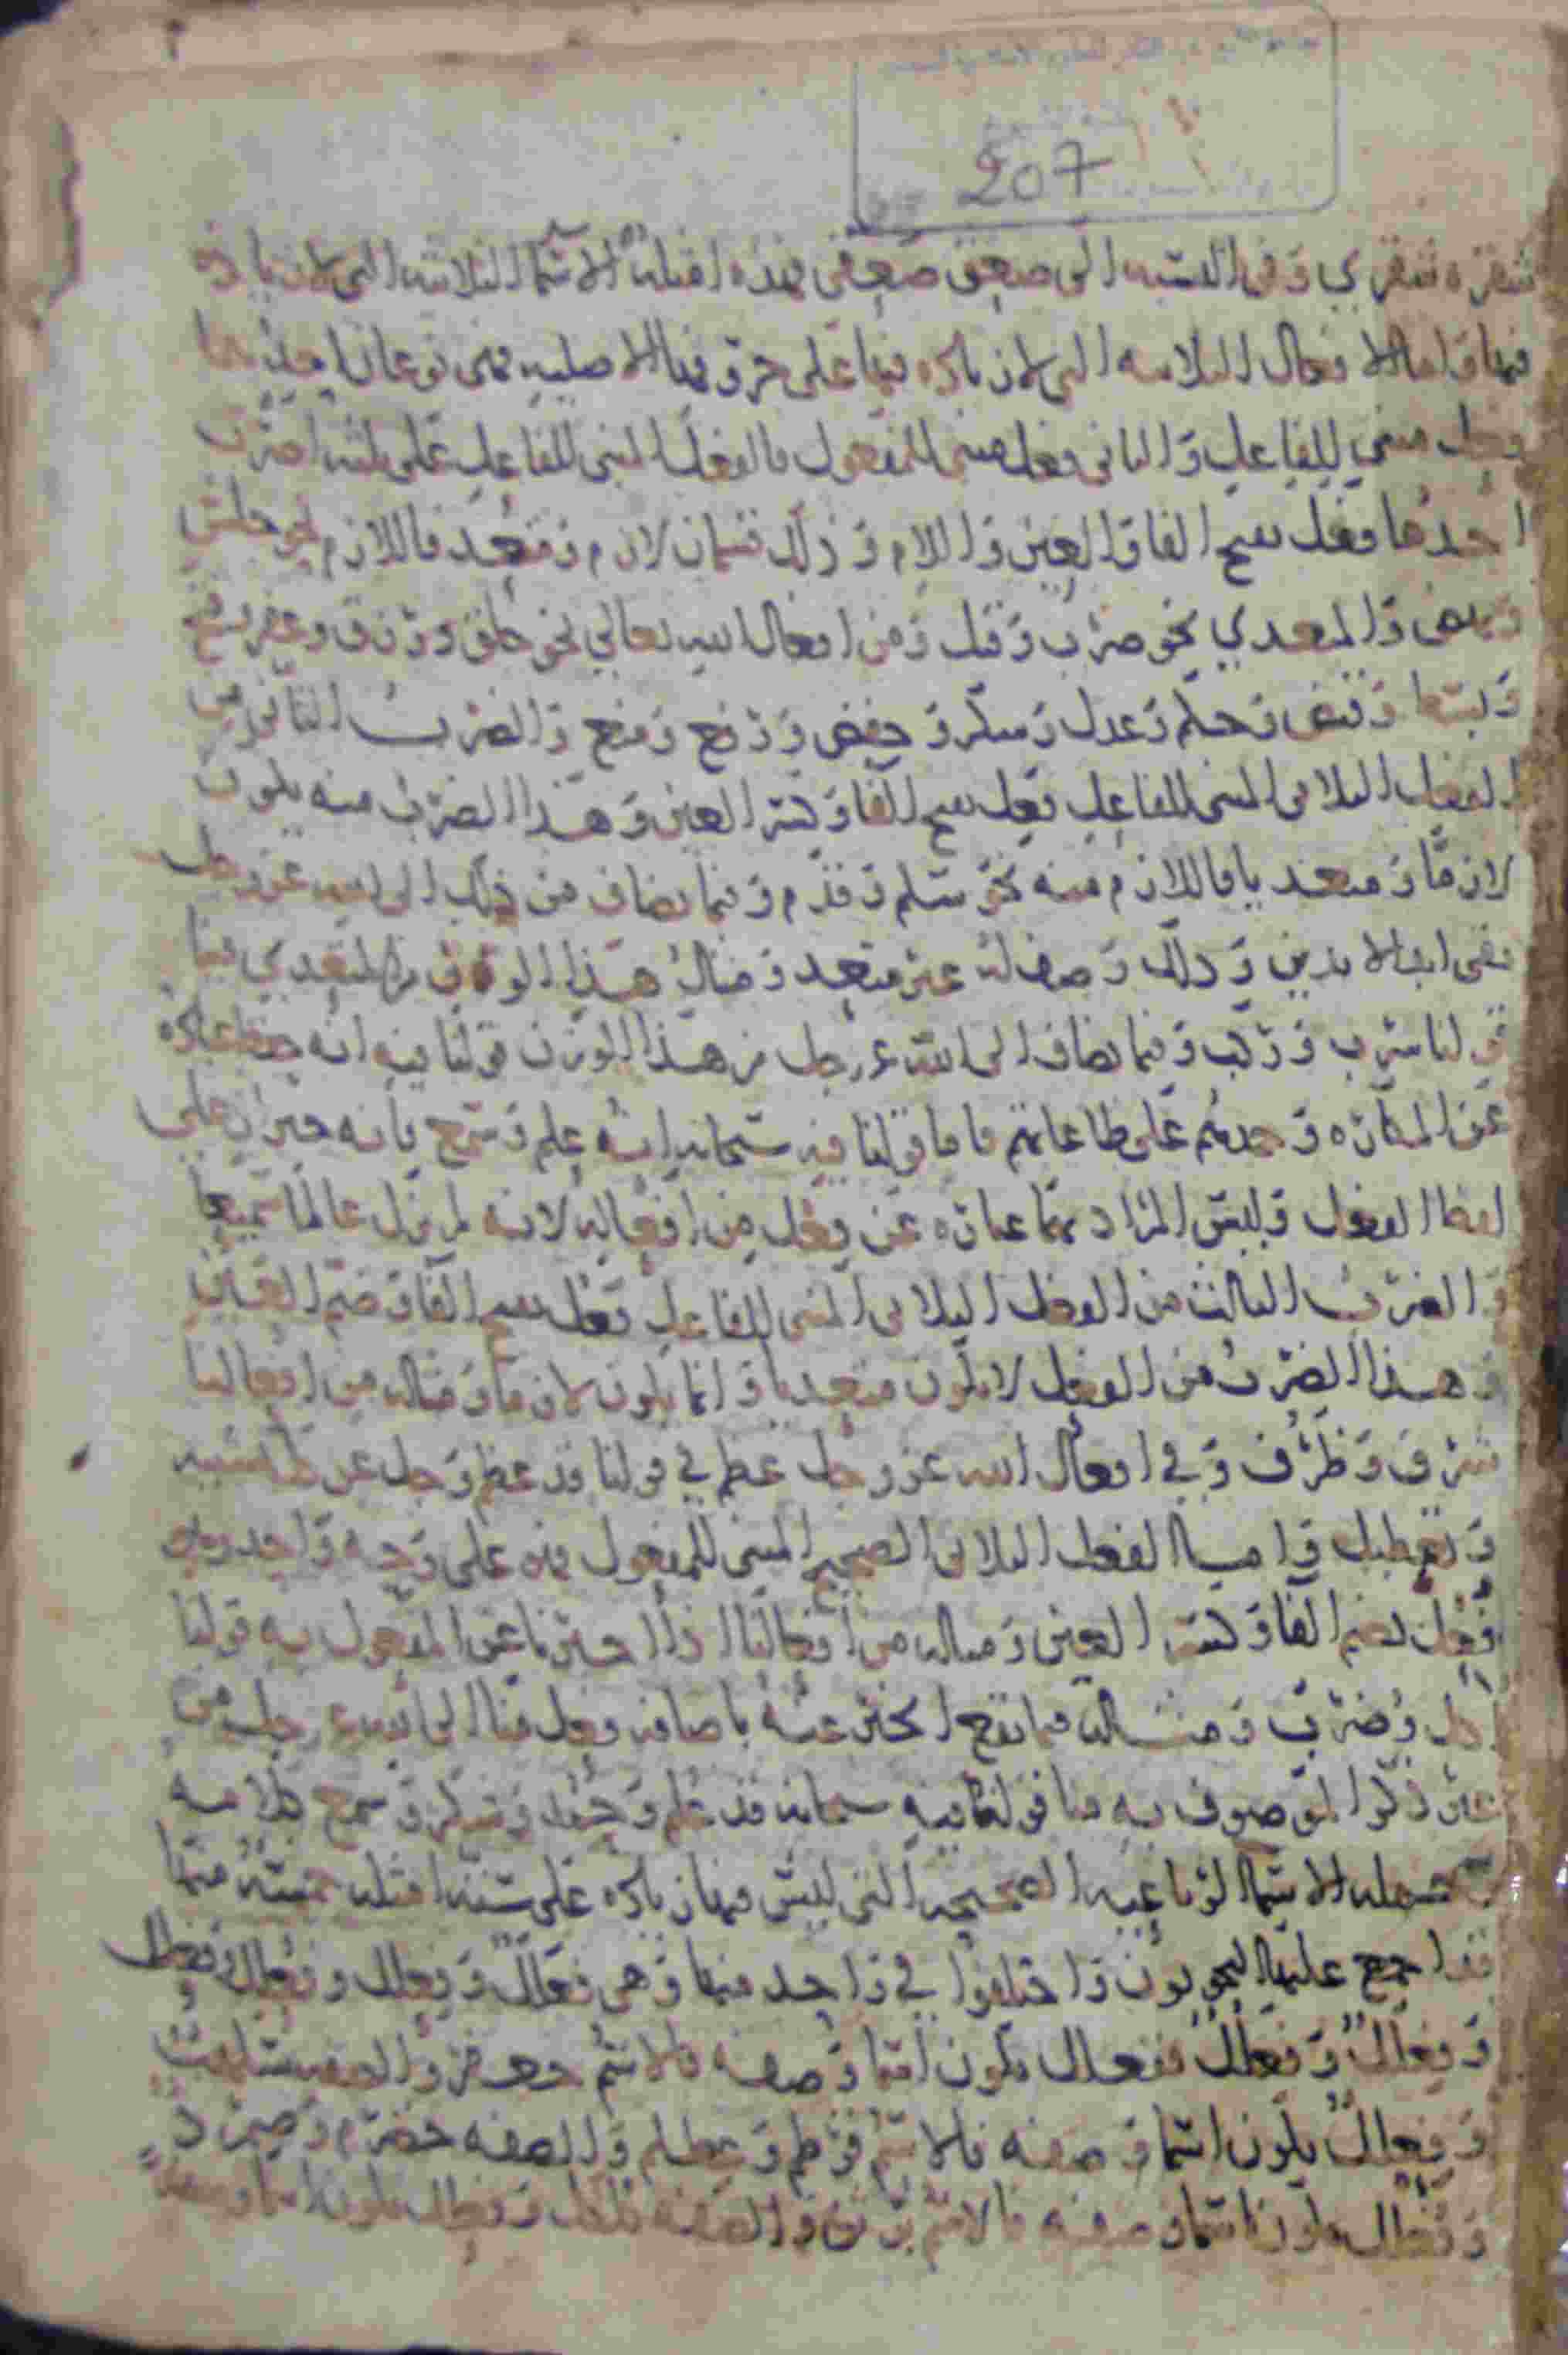 207
شقره شقري وفي النسبه الى صعق صعقي فهذه امثله الاسما الثلاثيه التي لا زياده
فيها واما الافعال الثلاثيه التي لا زياده فيها على حروفها الاصليه فهي نوعان احدهما
فعل مبني للفاعل والثاني فعل مبني للمفعول فالفعل المبني للفاعل على ثلثه اضرب
احدها فعل بفتح الفا والعين واللام وذلك قسمان لازم ومتعد فاللازم نحو جلس
والمتعدي نحو ضرب وقتل ومن افعال الله تعالى نحو خلق ورزق وغفر
وحلم وعدل وشكر وخفض ورفع ومنع والضرب الثاني من
الفعل الثلاثي المبني للفاعل فعل بفتح الفا وكسر العين وهذا الضرب منه يكون
لازما ومتعديا فاللازم منه نحو سلم وقدم وفيما يضاف من ذلك الى الله عز وجل
بقي ابد الابدين وذلك وصف له غير متعد ومثال هذا الوزن من المتعدي فينا
قولنا شرب وركب وفيما يضاف الى الله عز وجل من هذا الوزن قولنا فيه انه حفظ عباده
عن المكاره وحمدهم على طاعاتهم فاما قولنا فيه سبحانه انه علم وسمع فانه خبر ان على
لفظ الفعل وليس المراد بهما عباره عن فعل من افعاله لانه لم يزل عالما سميعا
والضرب الثالث من الفعل الثلاثي المبني للفاعل فعل بفتح الفا وضم العين
وهذا الضرب من الفعل لا يكون متعديا وانما يكون لازما ومثاله من افعالنا
شرف وظرف وفي افعال الله عز وجل عظم في قولنا قد عظم وجل عن كل تشبيه
وتعطيل واما الفعل الثلاثي الصحيح المبني للمفعول فانه على وجه واحد وهو
فعل بضم الفا وكسر العين ومثاله من افعالنا اذا اخبرنا عن المفعول به قولنا
اكل وضرب ومثاله فيما يقع الخبر عنه باضافه فعل منا الى الله عز وجل من
غير ذكر الموصوف به منا قولنا فيه سبحانه قد علم وحمد وشكر وسمع كلامه
الاسما الرباعيه الصحيحه التي ليس فيها زياده على سته امثله خمسه منها
قد اجمع عليها النحويون واختلفوا في واحد منها وهي فعلل وفعلل وفعلل وفعلل
وفعلل وفعلل ففعلل يكون اسما وصفه فالاسم جعفر والصفه سلهب
وفعلل يكون اسما وصفه فالاسم والصفه
وفعلل يكون اسما وصفه فالاسم برثن والصفه وفعلل يكون اسما وصفه